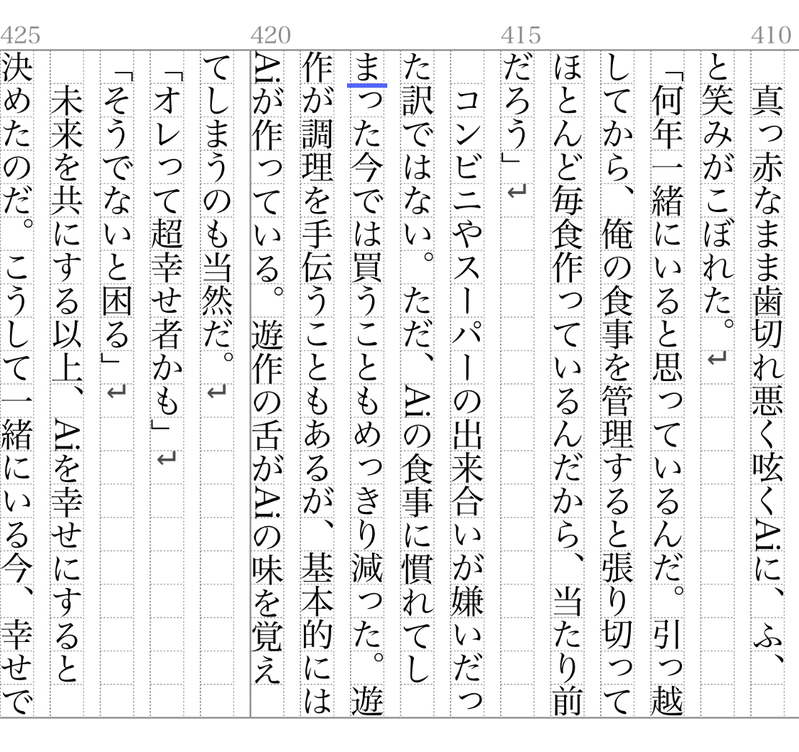 425 420 415 410
真っ赤なまま歯切れ悪く呟くAiに、ふ、
と笑みがこぼれた。↵
「何年一緒にいると思っているんだ。引っ越
してから、俺の食事を管理すると張り切って
ほとんど毎食作っているんだから、当たり前
だろう」↵
コンビニやスーパーの出来合いが嫌いだっ
た訳ではない。ただ、Aiの食事に慣れてし
まった今では買うこともめっきり減った。遊
作が調理を手伝うこともあるが、基本的には
Aiが作っている。遊作の舌がAiの味を覚え
てしまうのも当然だ。↵
「オレって超幸せ者かも」↵
「そうでないと困る」↵
未来を共にする以上、Aiを幸せにすると
決めたのだ。こうして一緒にいる今、幸せで